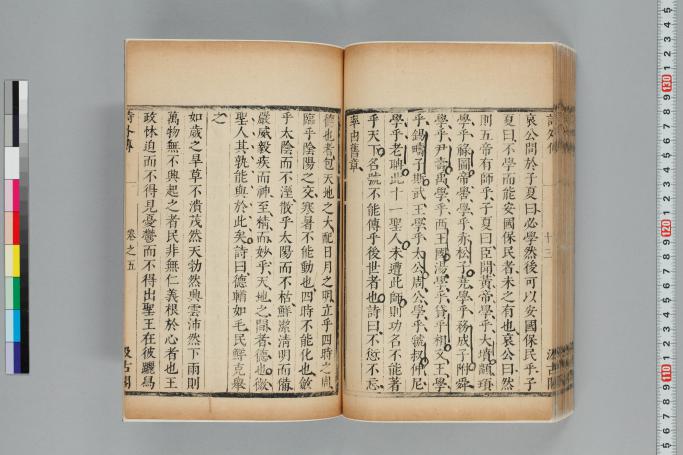 詩外傳
十三
汲古閣
哀公問於子夏曰必學然後可以安國保民乎子
夏曰不學而能安國保民者未之有也哀公曰然
則五帝有師乎子夏曰臣聞黃帝學乎大墳顓頊
學乎祿圖帝嚳學乎赤松子堯學乎務成子附舜
學乎尹壽禹學乎西王國湯學乎貸乎相文王學
乎錫疇子斯武王學乎太公周公學乎虢叔仲尼
學乎老聃此十一聖人未遭此師則功名不能著
乎天下名號不能傳乎後世者也詩曰不愆不忘
率由舊章
德也者包天地之大配日月之明立乎四時之周
臨乎陰陽之交寒暑不能動也四時不能化也斂
乎太陰而不溼散乎太陽而不枯鮮潔清明而備
嚴威毅疾而神至精而妙乎天地之間者德也微
聖人其孰能與於此矣詩曰德輶如毛民鮮克舉
之
如歲之旱草不潰茂然天勃然興雲沛然下雨則
萬物無不興起之者民非無仁義根於心者也王
政怵迫而不得見憂鬱而不得出聖王在彼躧舄
詩外傳
卷之五
汲古閣